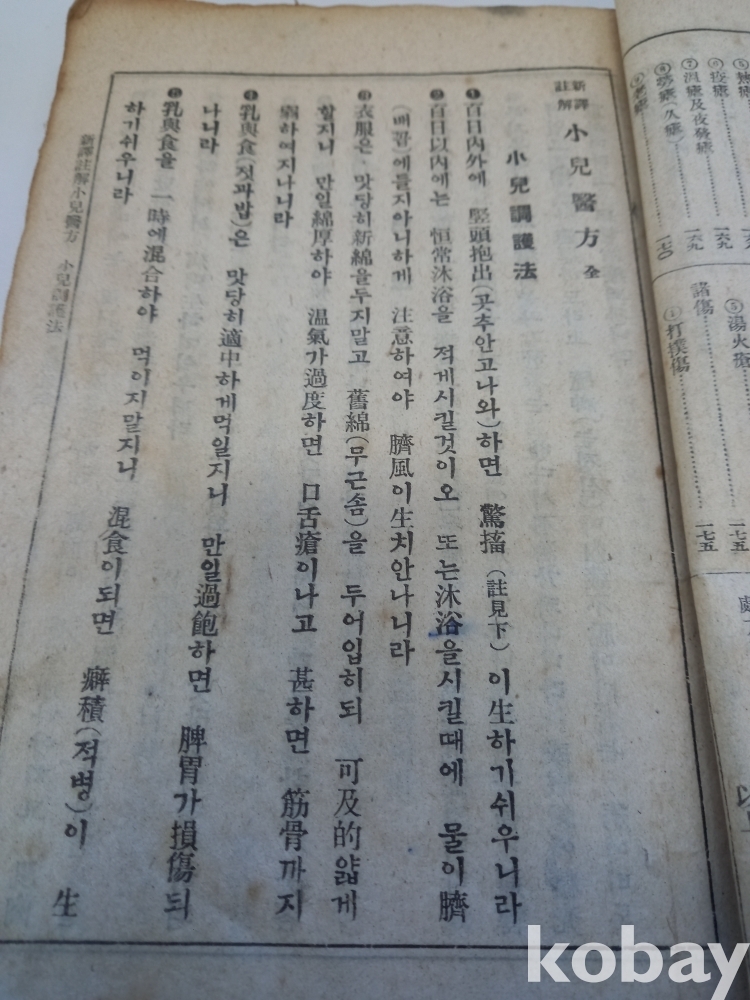 湯火傷
一七五
諸傷
①打撲傷
一七五
新譯
註解 小兒醫方 全
小兒調護法
❶百日內外에 竪頭抱出(곳추안고나와)하면 驚搐(註見下)이生하기쉬우니라
❷百日以內에는 恒常沐浴을 적게시킬것이오 또는沐浴을시킬때에 물이臍
(배꼽)에들지아니하게 注意하여야 臍風이生치안나니라
❸衣服은 맛당히新綿을두지말고 舊綿(무근솜)을 두어입히되 可及的얇게
할지니 만일綿厚하야 溫氣가過度하면 口舌瘡이나고 甚하면 筋骨까지
弱하여지나니라
❹乳與食(젓과밥)은 맛당히適中하게먹일지니 만일過飽하면 脾胃가損傷되
나니라
❺乳與食을 一時에混合하야 먹이지말지니 混食이되면 癖積(적병)이 生
하기쉬우니라
新譯註解小兒醫方 小兒調護法
kobay